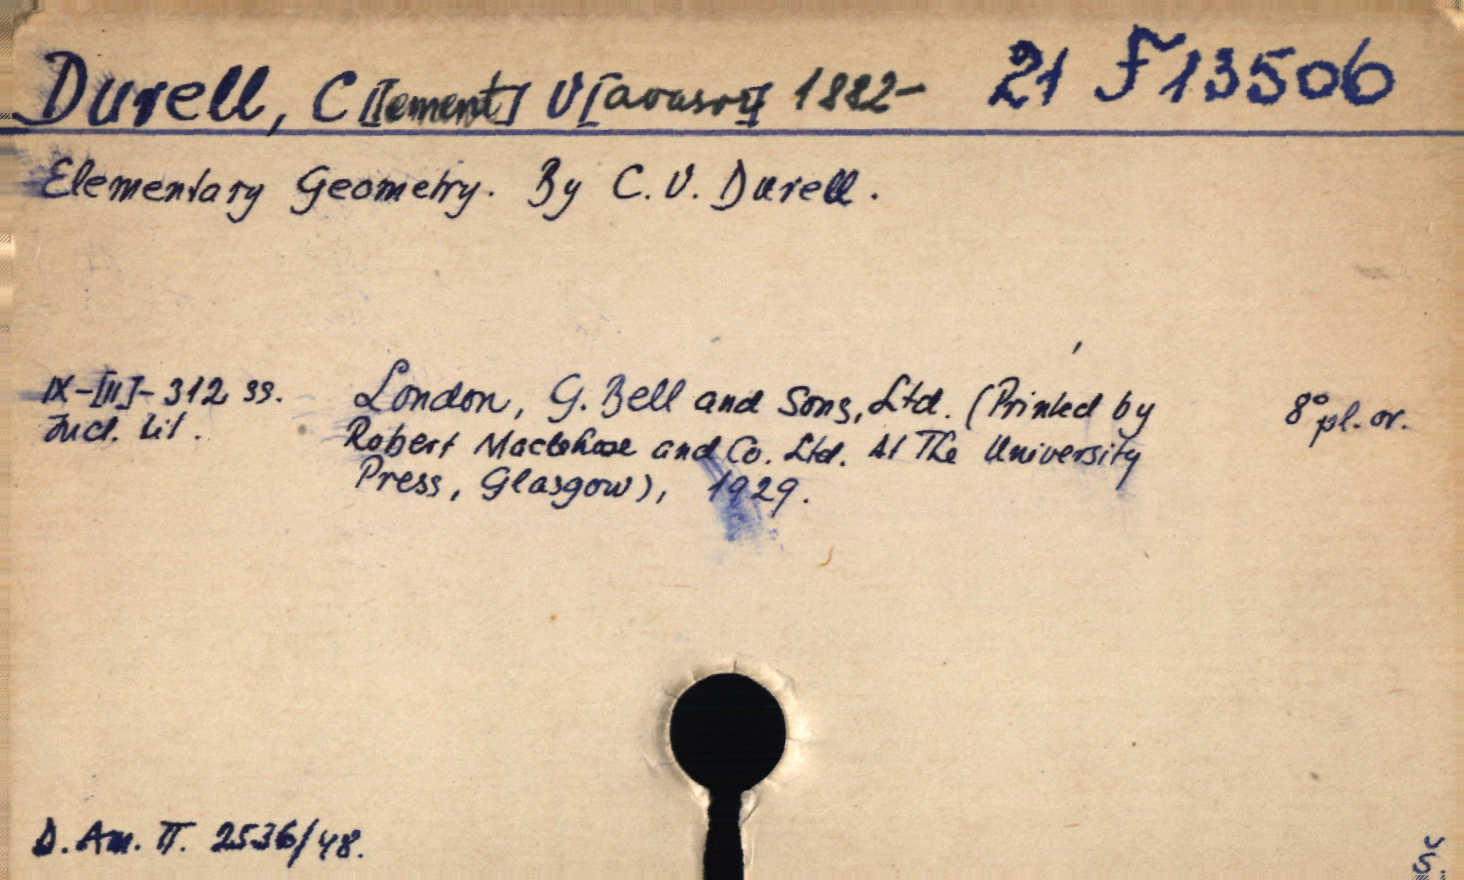 Durell, C[lement] V[avasor] 1882- 21 F 13506
Elementary Geometry. By C. V. Durell.
IX-[III]-312 ss. London, G. Bell and Sons, Ltd. (Printed by 8° pl. or.
Incl. tit. Robert Maclehose and Co. Ltd. At The University
Press, Glasgow), 1929.
D. Am. II. 2536/48.